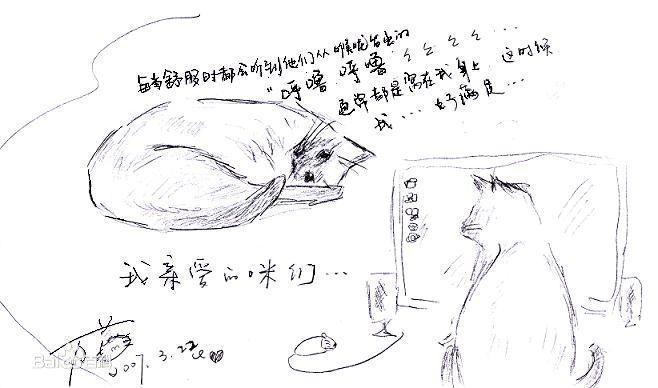 每当舒服时都会听到他们从喉咙冒出的
"呼噜 呼噜
通常都是窝在我身上 这时候
我...好满足...
我亲爱的咪们...
2007.3.22
Baidu百科